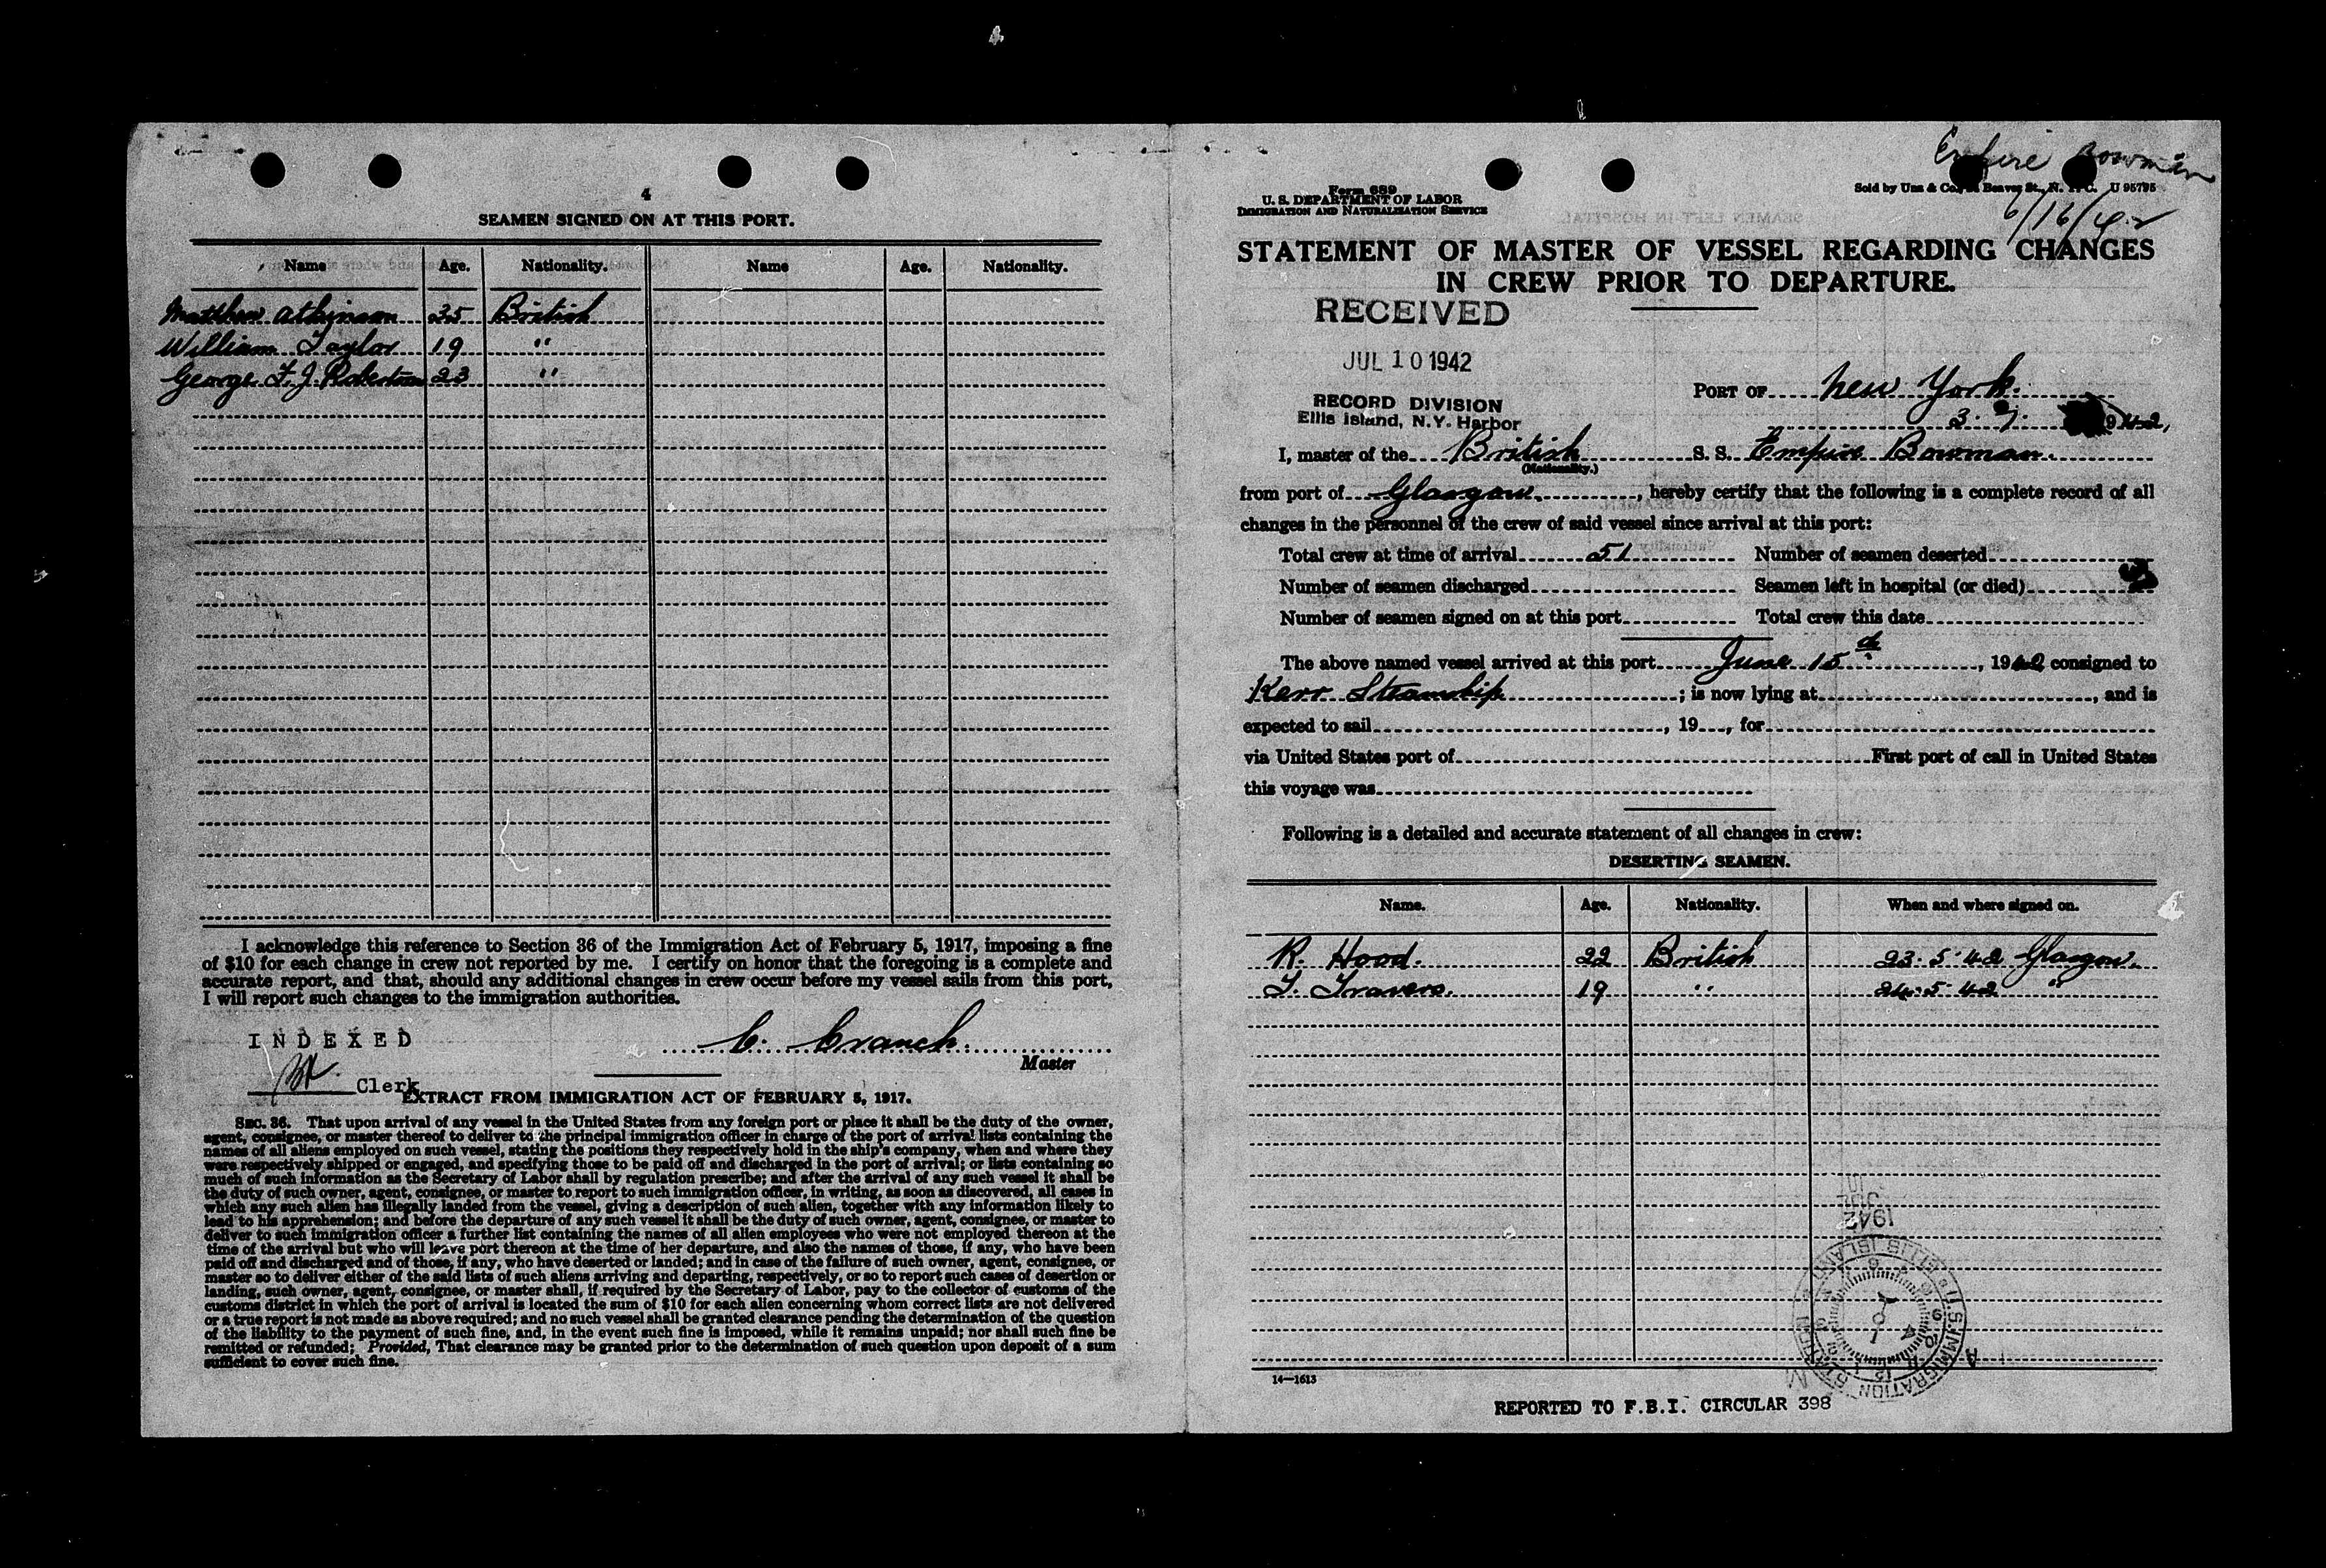 4
SEAMEN SIGNED ON AT THIS PORT.
Name Age. Nationality. Name Age. Nationality.
Matthew Atkinson 25 British
William Taylor 19 "
George F. J. Robertson 23 "
I acknowledge this reference to Section 36 of the Immigration Act of February 5, 1917, imposing a fine
of $10 for each change in crew not reported by me. I certify on honor that the foregoing is a complete and
accurate report, and that, should any additional changes in crew occur before my vessel sails from this port,
I will report such changes to the immigration authorities.
INDEXED
C. Cranch.
Master
Clerk
EXTRACT FROM IMMIGRATION ACT OF FEBRUARY 5, 1917.
SEC. 36. That upon arrival of any vessel in the United States from any foreign port or place it shall be the duty of the owner,
agent, consignee, or master thereof to deliver to the principal immigration officer in charge of the port of arrival lists containing the
names of all aliens employed on such vessel, stating the positions they respectively hold in the ship's company, when and where they
were respectively shipped or engaged, and specifying those to be paid off and discharged in the port of arrival; or lists containing so
much of such information as the Secretary of Labor shall by regulation prescribe; and after the arrival of any such vessel it shall be
the duty of such owner, agent, consignee, or master to report to such immigration officer, in writing, as soon as discovered, all cases in
which any such alien has illegally landed from the vessel, giving a description of such alien, together with any information likely to
lead to his apprehension; and before the departure of any such vessel it shall be the duty of such owner, agent, consignee, or master to
deliver to such immigration officer a further list containing the names of all alien employees who were not employed thereon at the
time of the arrival but who will leave port thereon at the time of her departure, and also the names of those, if any, who have been
paid off and discharged and of those, if any, who have deserted or landed; and in case of the failure of such owner, agent, consignee, or
master so to deliver either of the said lists of such aliens arriving and departing, respectively, or so to report such cases of desertion or
landing, such owner, agent, consignee, or master shall, if required by the Secretary of Labor, pay to the collector of customs of the
customs district in which the port of arrival is located the sum of $10 for each alien concerning whom correct lists are not delivered
or a true report is not made as above required; and no such vessel shall be granted clearance pending the determination of the question
of the liability to the payment of such fine, and, in the event such fine is imposed, while it remains unpaid; nor shall such fine be
remitted or refunded; Provided, That clearance may be granted prior to the determination of such question upon deposit of a sum
sufficient to cover such fine.
Empire Bowman
6/16/42
Form 689
U. S. DEPARTMENT OF LABOR
IMMIGRATION AND NATURALIZATION SERVICE
Sold by Unz & Co., Beaver St., N. Y. C. U 95795
STATEMENT OF MASTER OF VESSEL REGARDING CHANGES
IN CREW PRIOR TO DEPARTURE.
RECEIVED
JUL 10 1942
RECORD DIVISION
Ellis Island, N.Y. Harbor
PORT OF New York.
3. 7. 1942,
I, master of the British S. S. Empire Bowman.
(Nationality.)
from port of Glasgow., hereby certify that the following is a complete record of all
changes in the personnel of the crew of said vessel since arrival at this port:
Total crew at time of arrival 51 Number of seamen deserted
Number of seamen discharged Seamen left in hospital (or died)
Number of seamen signed on at this port Total crew this date
The above named vessel arrived at this port June 15th, 1942 consigned to
Kerr Steamship; is now lying at, and is
expected to sail, 19, for
via United States port of First port of call in United States
this voyage was
Following is a detailed and accurate statement of all changes in crew:
DESERTING SEAMEN.
Name. Age. Nationality. When and where signed on.
R. Hood. 22 British 23. 5. 42 Glasgow.
T. Travers. 19 " 24. 5. 42 "
1942
U.S. IMMIGRATION STATION ELLIS ISLAND
14—1613
REPORTED TO F.B.I. CIRCULAR 398